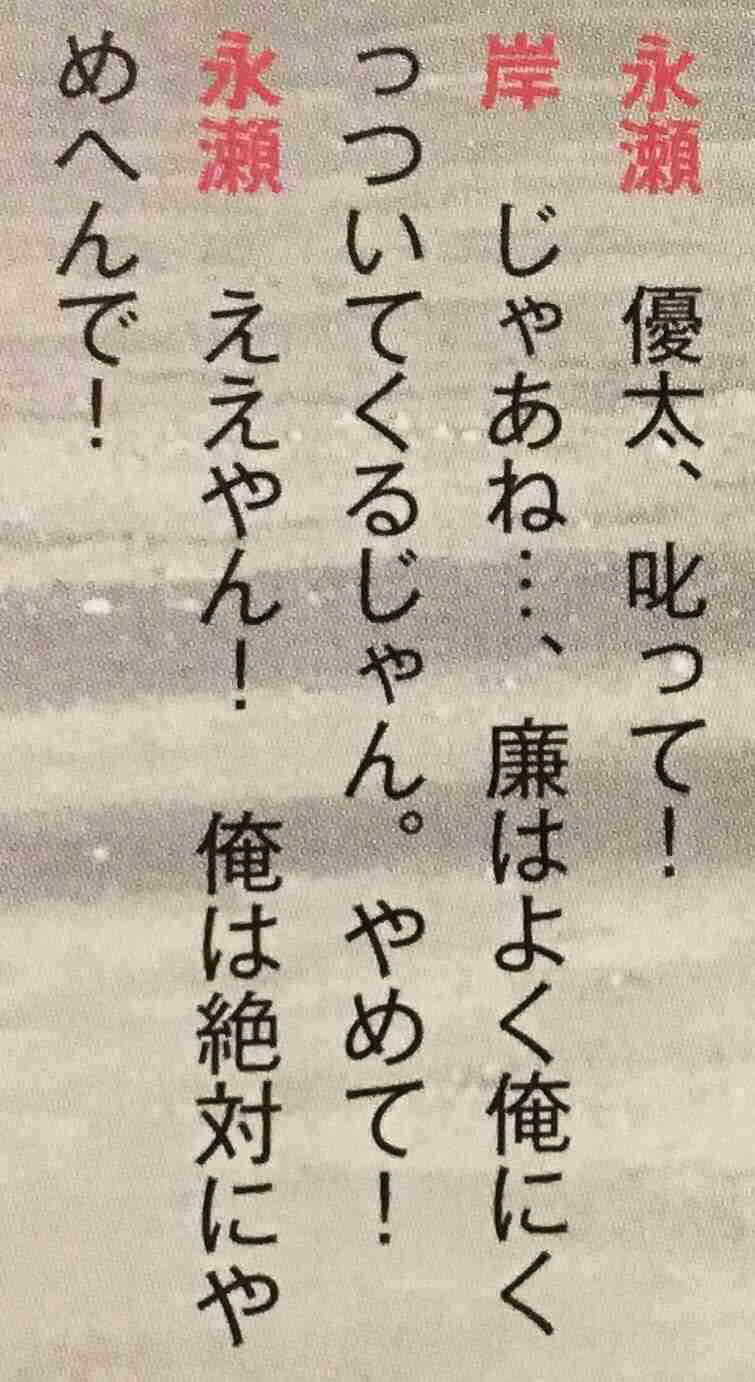 永瀬　優太、叱って！
岸　じゃあね…、廉はよく俺にく
っついてくるじゃん。やめて！
永瀬　ええやん！　俺は絶対にや
めへんで！